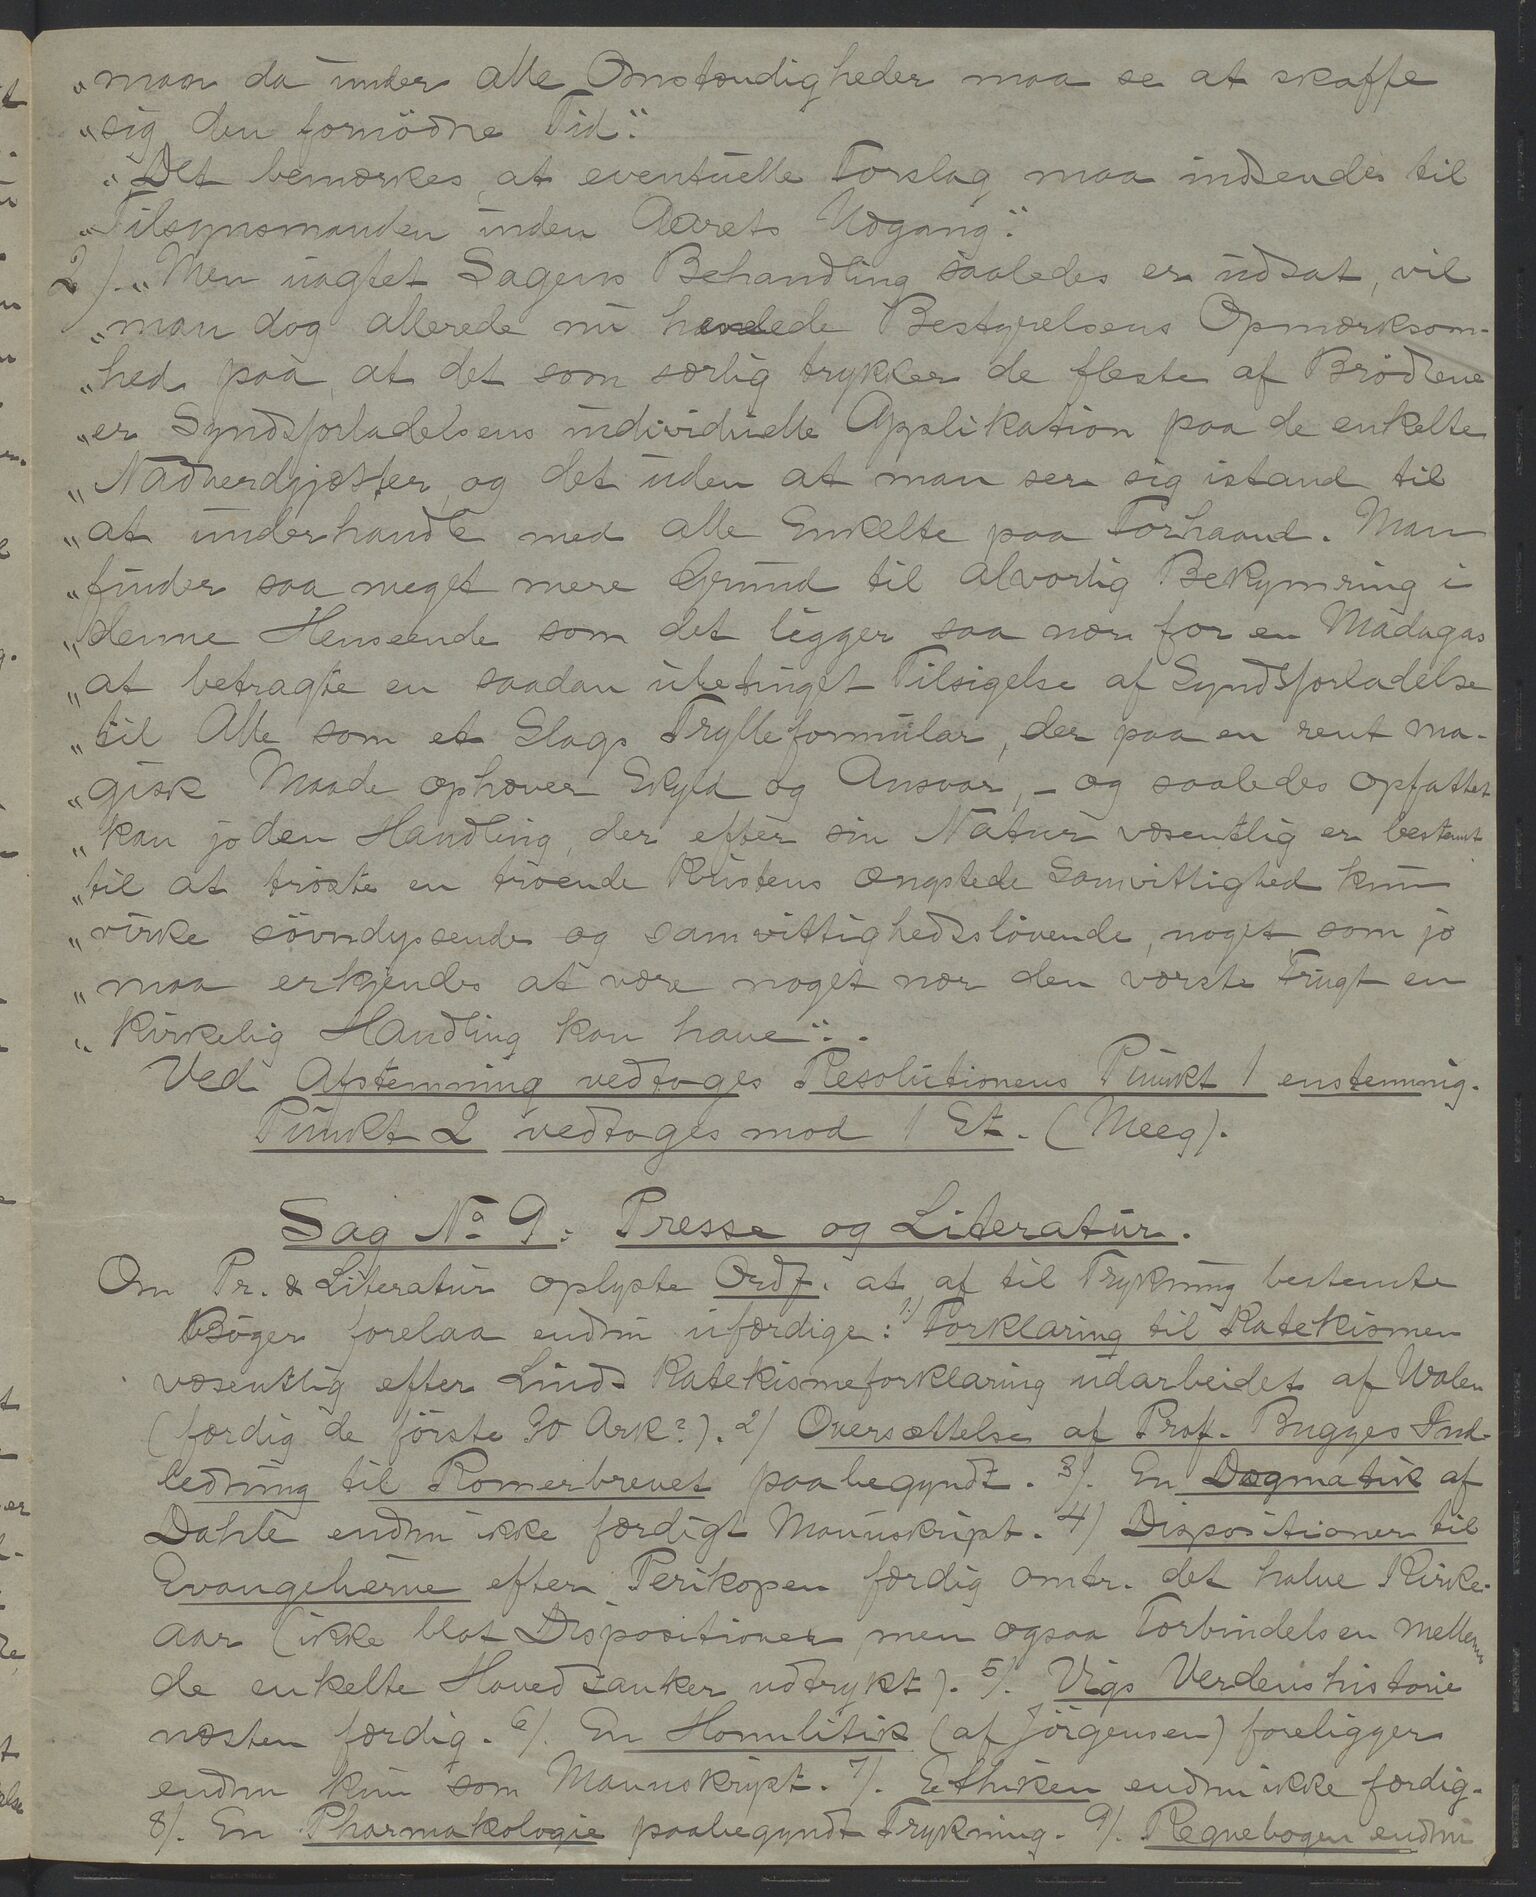 "man da under alle Omstændigheder maa se at skaffe
"sig den fornödne Tid".
"Det bemærkes, at eventuelle Forslag maa indsendes til
"Tilsynsmanden inden Aarets Udgang".
2). "Men uagtet Sagens Behandling saaledes er udsat, vil
"man dog allerede nu henlede Bestyrelsens Opmærksom-
"hed paa, at det som særlig trykker de fleste af Brödrene
"er Syndsforladelsens individuelle Applikation paa de enkelte
"Nadverdgjæster, og det uden at man ser sig istand til
"at underhandle med alle Enkelte paa Forhaand. Man
"finder saa meget mere Grund til alvorlig Bekymring i
"denne Henseende som det ligger saa nær for en Madagas
"at betragte en saadan ubetinget Tilsigelse af Syndsforladelse
"til Alle som et Slags Trylleformular, der paa en rent ma-
"gisk Maade ophæver Skyld og Ansvar, - og saaledes opfattet
"kan jo den Handling, der efter sin Natur væsentlig er bestemt
"til at tröste en troende Kristens ængstede Samvittighed kun
"virke sövndyssende og samvittighedslövende, noget som jo
"maa erkjendes at være noget nær den værste Frugt en
"kirkelig Handling kan have".
Ved Afstemning vedtages Resolutionens Punkt 1 enstemmig.
Punkt 2 vedtages mod 1 St. (Meeg).
Sag No 9: Presse og Literatur.
Om Pr. & Literatur oplyste Ordf. at af til Trykning bestemte
Böger forelaa endnu ufærdige: 1) Forklaring til Katekismen
væsentlig efter Linds Katekismeforklaring udarbeidet af Walen
(færdig de förste 30 Ark?). 2) Oversættelse af Prof. Bugges Ind-
ledning til Romerbrevet paabegyndt. 3). En Dogmatik af
Dahle endnu ikke færdigt Manuskript. 4) Dispositioner til
Evangelierne efter Perikopen færdig omtr. det halve Kirke-
aar (ikke blot Dispositioner, men ogsaa Forbindelsen mellem
de enkelte Hovedtanker udtrykt). 5). Vigs Verdenshistorie
næsten færdig. 6). En Homilitik (af Jörgensen) foreligger
endnu kun som Manuskript. 7). Ethiken endnu ikke færdig.
8). En Pharmakologie paabegyndt Trykning. 9). Regnebogen endnu